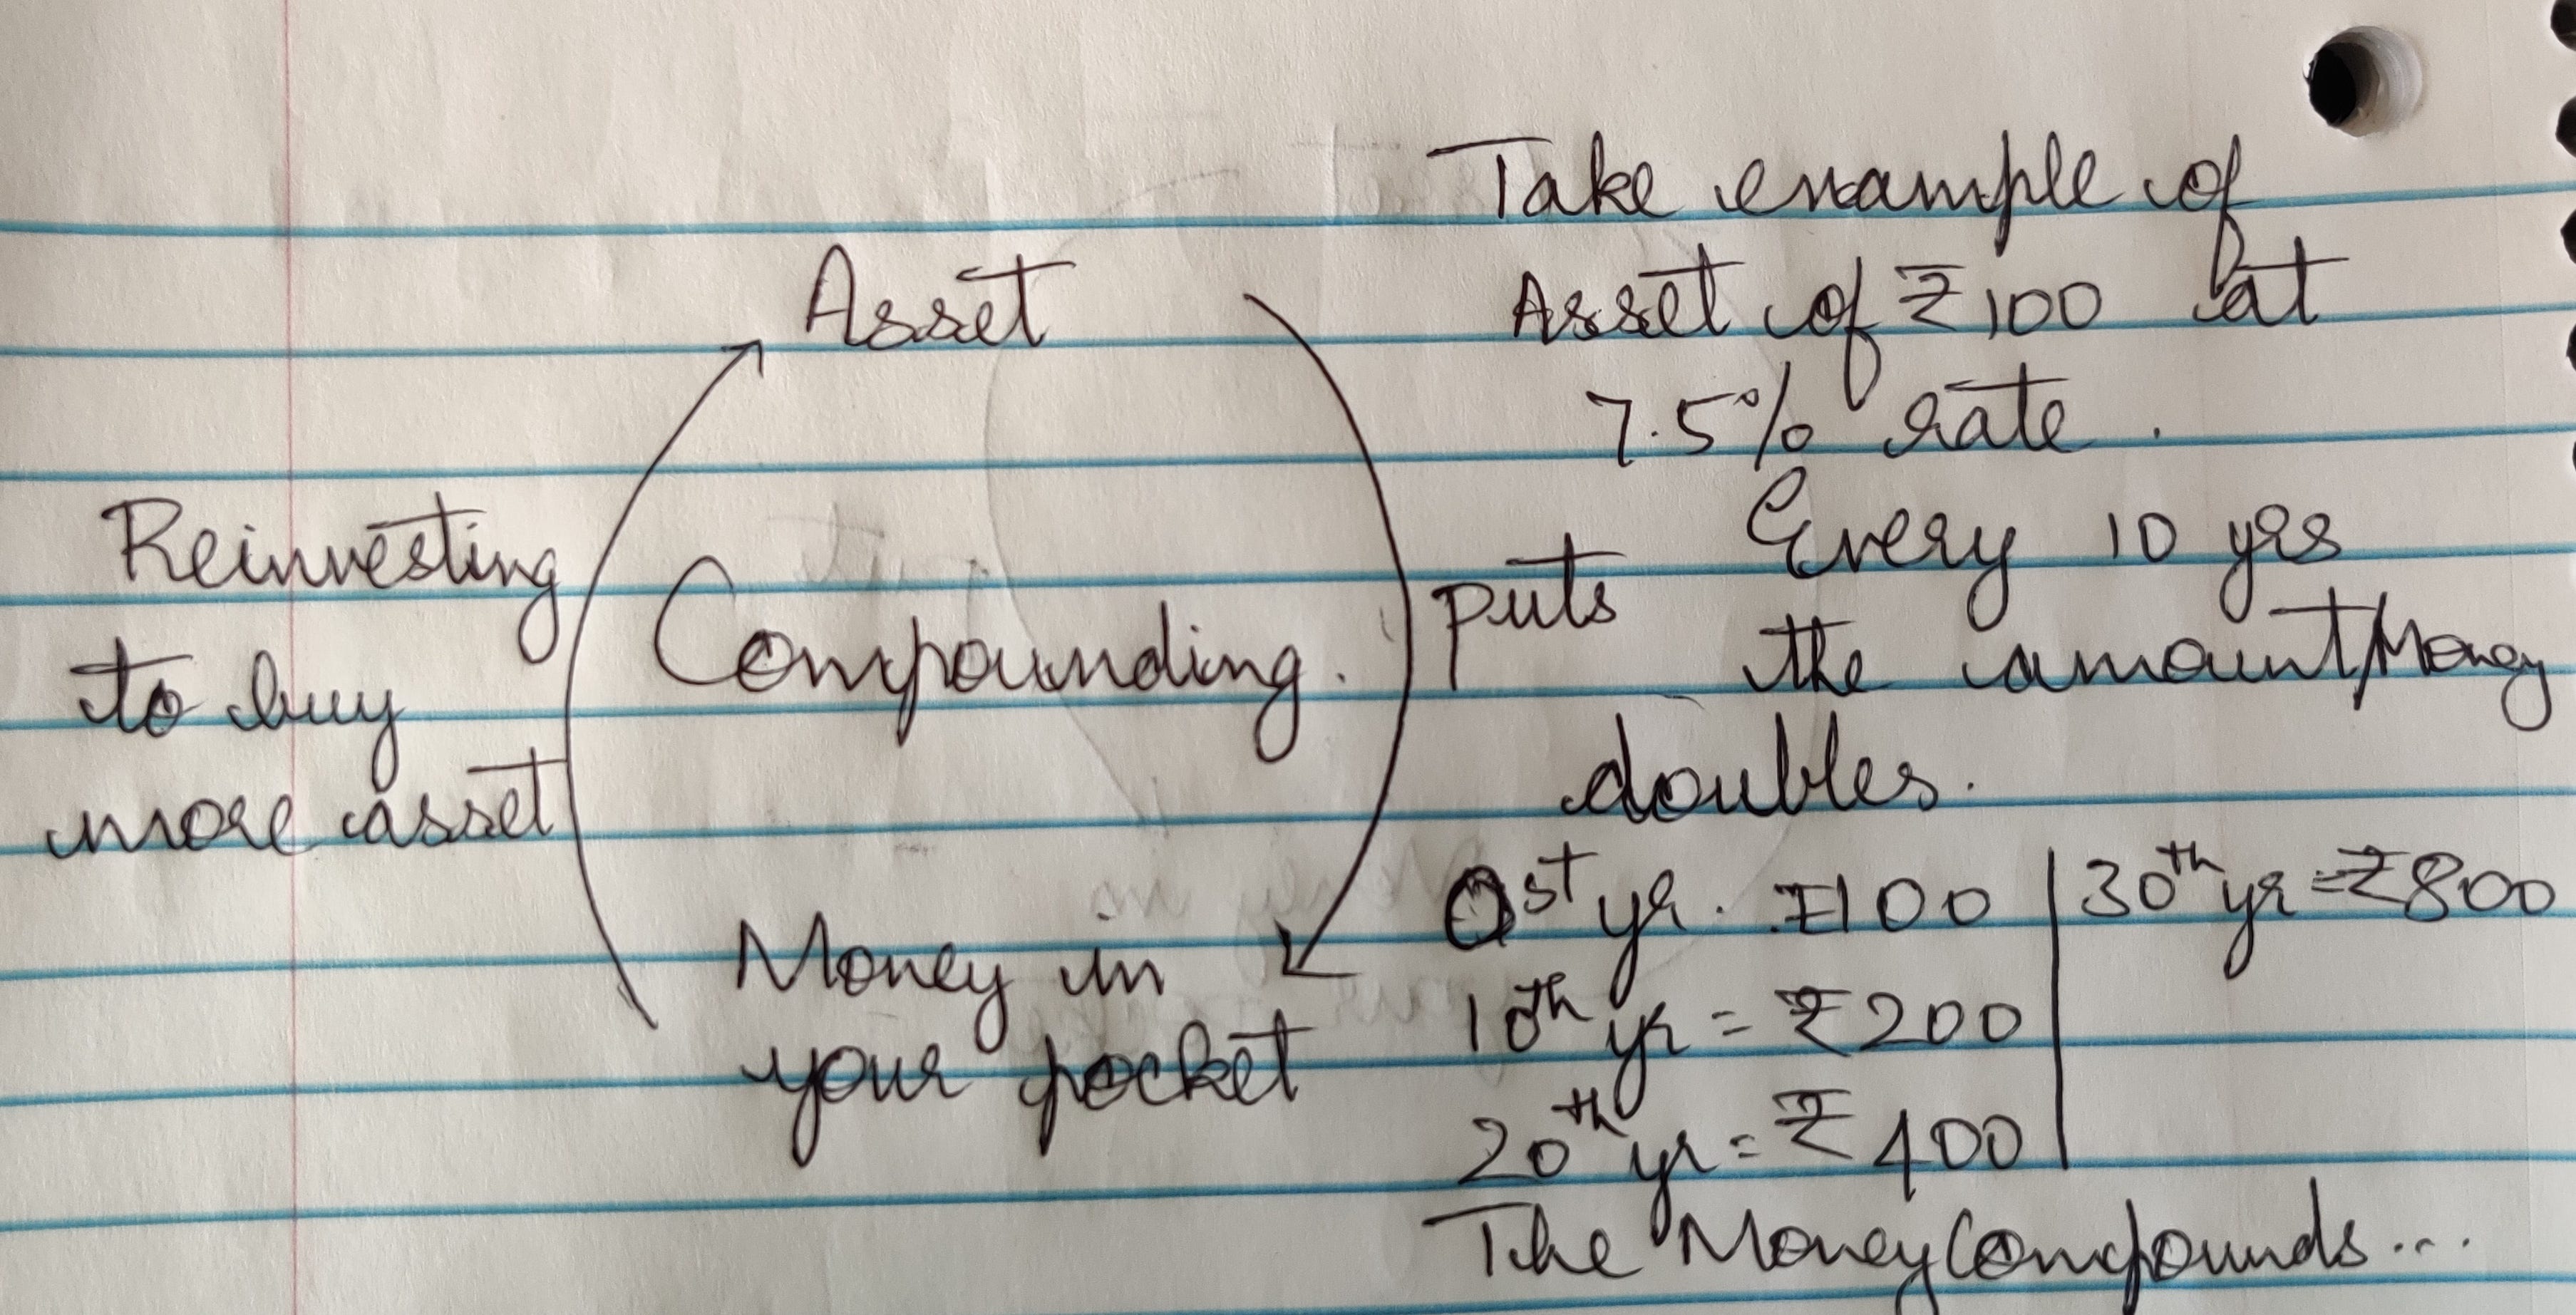 Asset
Compounding.
Puts
Money in
your pocket
Reinvesting
to buy
more asset
Take example of
Asset of ₹100 at
7.5% rate.
Every 10 yrs
the amount/Money
doubles.
0st yr. ₹100
10th yr = ₹200
20th yr = ₹400
30th yr = ₹800
The Money Compounds...